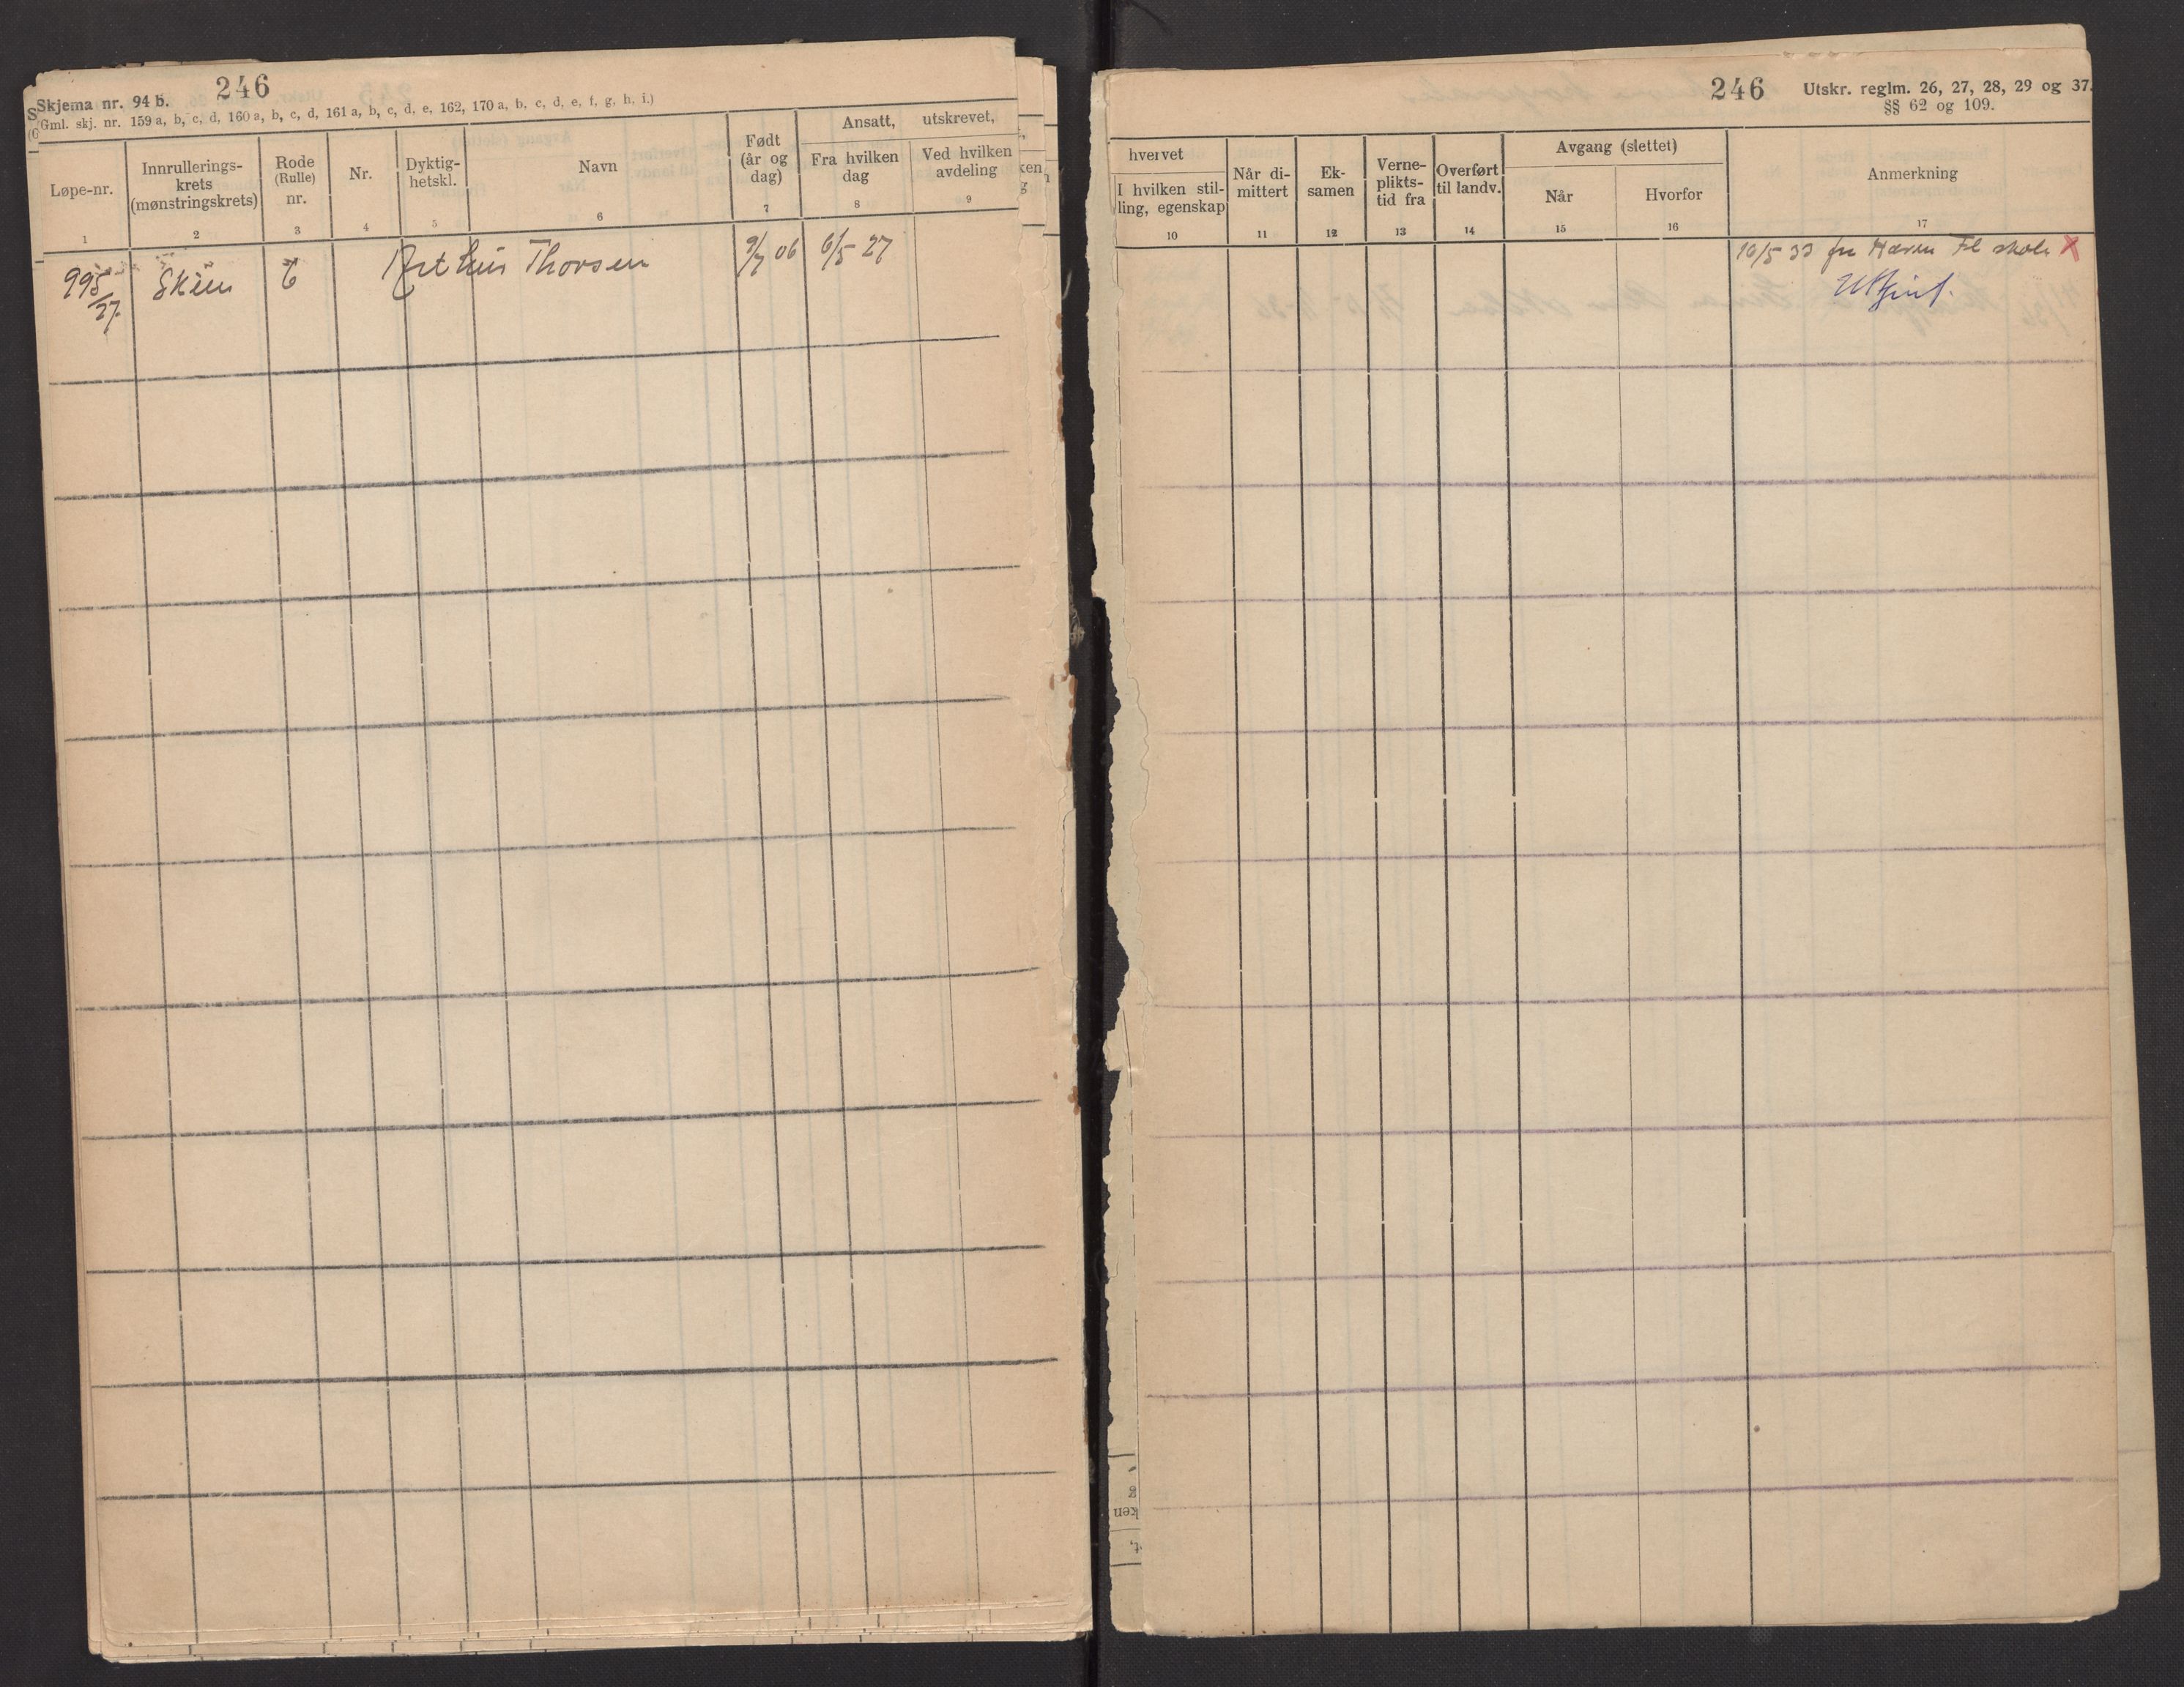 246
Skjema nr. 94 b.
(Gml. skj. nr. 159 a, b, c, d, 160 a, b, c, d, 161 a, b, c, d, e, 162, 170 a, b, c, d, e, f, g, h, i.)
Løpe-nr.
Innrullerings-
krets
(mønstringskrets)
Rode
(Rulle)
nr.
Nr.
Dyktig-
hetskl.
Navn
Født
(år og
dag)
Ansatt, utskrevet,
Fra hvilken
dag
Ved hvilken
avdeling
1 2 3 4 5 6 7 8 9
995/27. Skien 6 Arthur Thorsen 9/7 06 6/5 27
246
Utskr. reglm. 26, 27, 28, 29 og 37.
§§ 62 og 109.
hvervet
I hvilken stil-
ling, egenskap
Når di-
mittert
Ek-
samen
Verne-
plikts-
tid fra
Overført
til landv.
Avgang (slettet)
Når
Hvorfor
Anmerkning
10 11 12 13 14 15 16 17
10/5 33 fra Hærens Fl skole X